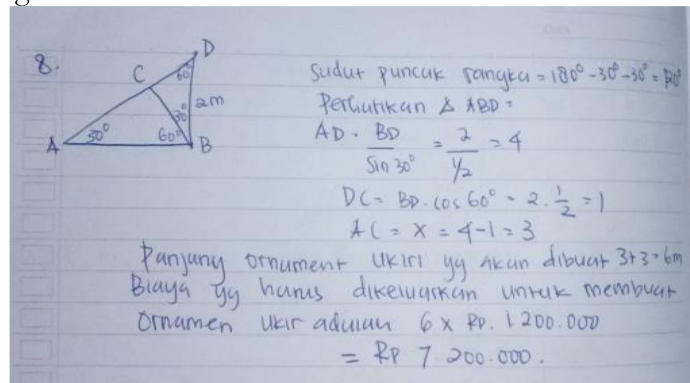 8.
D
C
60°
30°
2m
A
30°
60°
B
Sudut puncak rangka = 180° - 30° - 30° = 120°
Perhatikan Δ ABD =
AD = BD / Sin 30° = 2 / ½ = 4
DC = BD . cos 60° = 2 . 1/2 = 1
AC = x = 4 - 1 = 3
Panjang ornament ukiri yg akan dibuat 3+3=6m
Biaya yg harus dikeluarkan untuk membuat
Ornamen ukir adalah 6 x Rp. 1.200.000
= Rp 7.200.000.